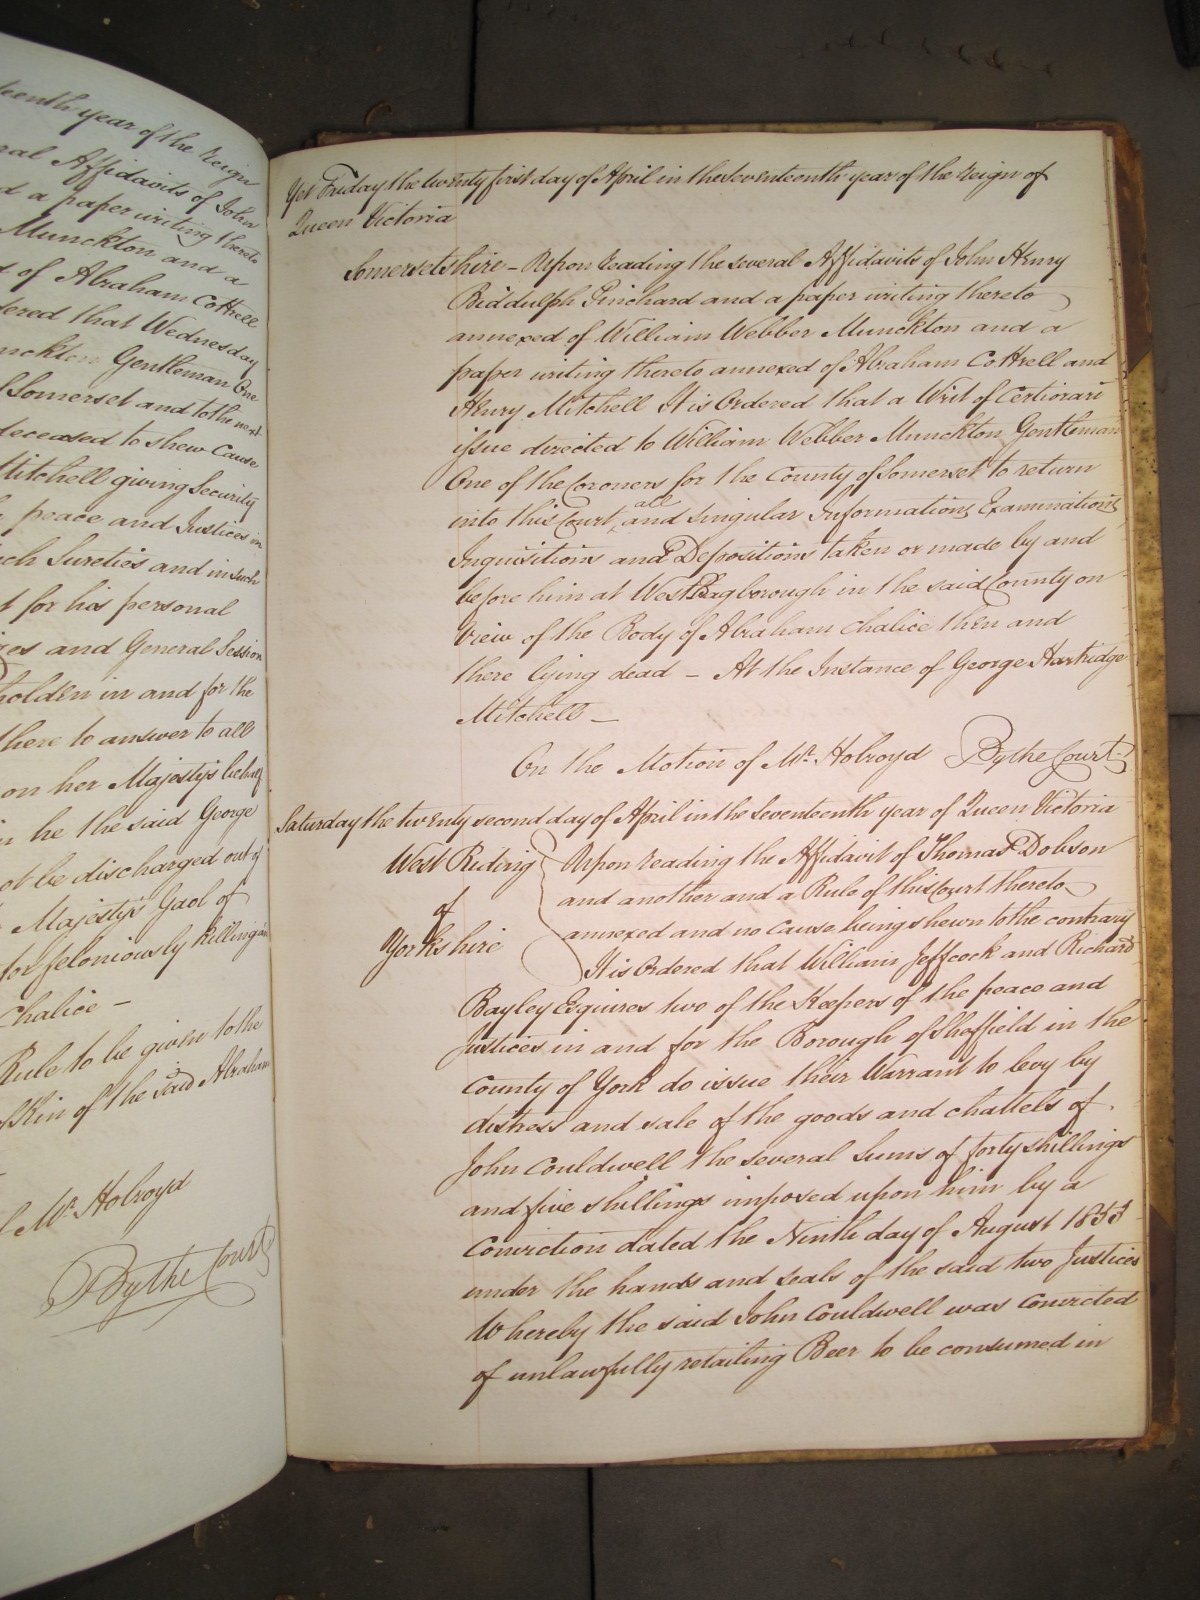 teenth year of the Reign
ral Affidavits of John
d a paper writing thereto
Munckton and a
t of Abraham Cottrell
dered that Wednesday
nckton Gentleman One
f Somerset and to the next
deceased to shew Cause
Mitchell giving Security
peace and Justices in
ch Sureties and in such
t for his personal
es and General Session
holden in and for the
there to answer to all
on her Majesty's behalf
n he the said George
ot be discharged out of
Majesty's Gaol of
for feloniously killing
Chalice –
Rule to be given to the
fkin of the said Abraham
Mr. Holroyd
By the Court
Yet Friday the twenty first day of April in the Seventeenth year of the Reign of
Queen Victoria
Somersetshire – Upon reading the several Affidavits of John Henry
Biddulph Pinchard and a paper writing thereto
annexed of William Webber Munckton and a
paper writing thereto annexed of Abraham Cottrell and
Henry Mitchell It is Ordered that a Writ of Certiorari
issue directed to William Webber Munckton Gentleman
One of the Coroners for the County of Somerset to return
into this Court all and Singular Informations Examinations
Inquisitions and Depositions taken or made by and
before him at West Bagborough in the said County on
View of the Body of Abraham Chalice then and
there lying dead – At the Instance of George Hartridge
Mitchell –
On the Motion of Mr. Holroyd By the Court
Saturday the twenty second day of April in the Seventeenth year of Queen Victoria
West Riding
of
Yorkshire
Upon reading the Affidavit of Thomas P Dobson
and another and a Rule of this Court thereto
annexed and no cause being shewn to the contrary
It is Ordered that William Jeffcock and Richard
Bayley Esquires two of the Keepers of the peace and
Justices in and for the Borough of Sheffield in the
County of York do issue their Warrant to levy by
distress and sale of the goods and chattels of
John Couldwell the several Sums of forty shillings
and five shillings imposed upon him by a
Conviction dated the Ninth day of August 1853
under the hands and seals of the said two Justices
Whereby the said John Couldwell was convicted
of unlawfully retailing Beer to be consumed in